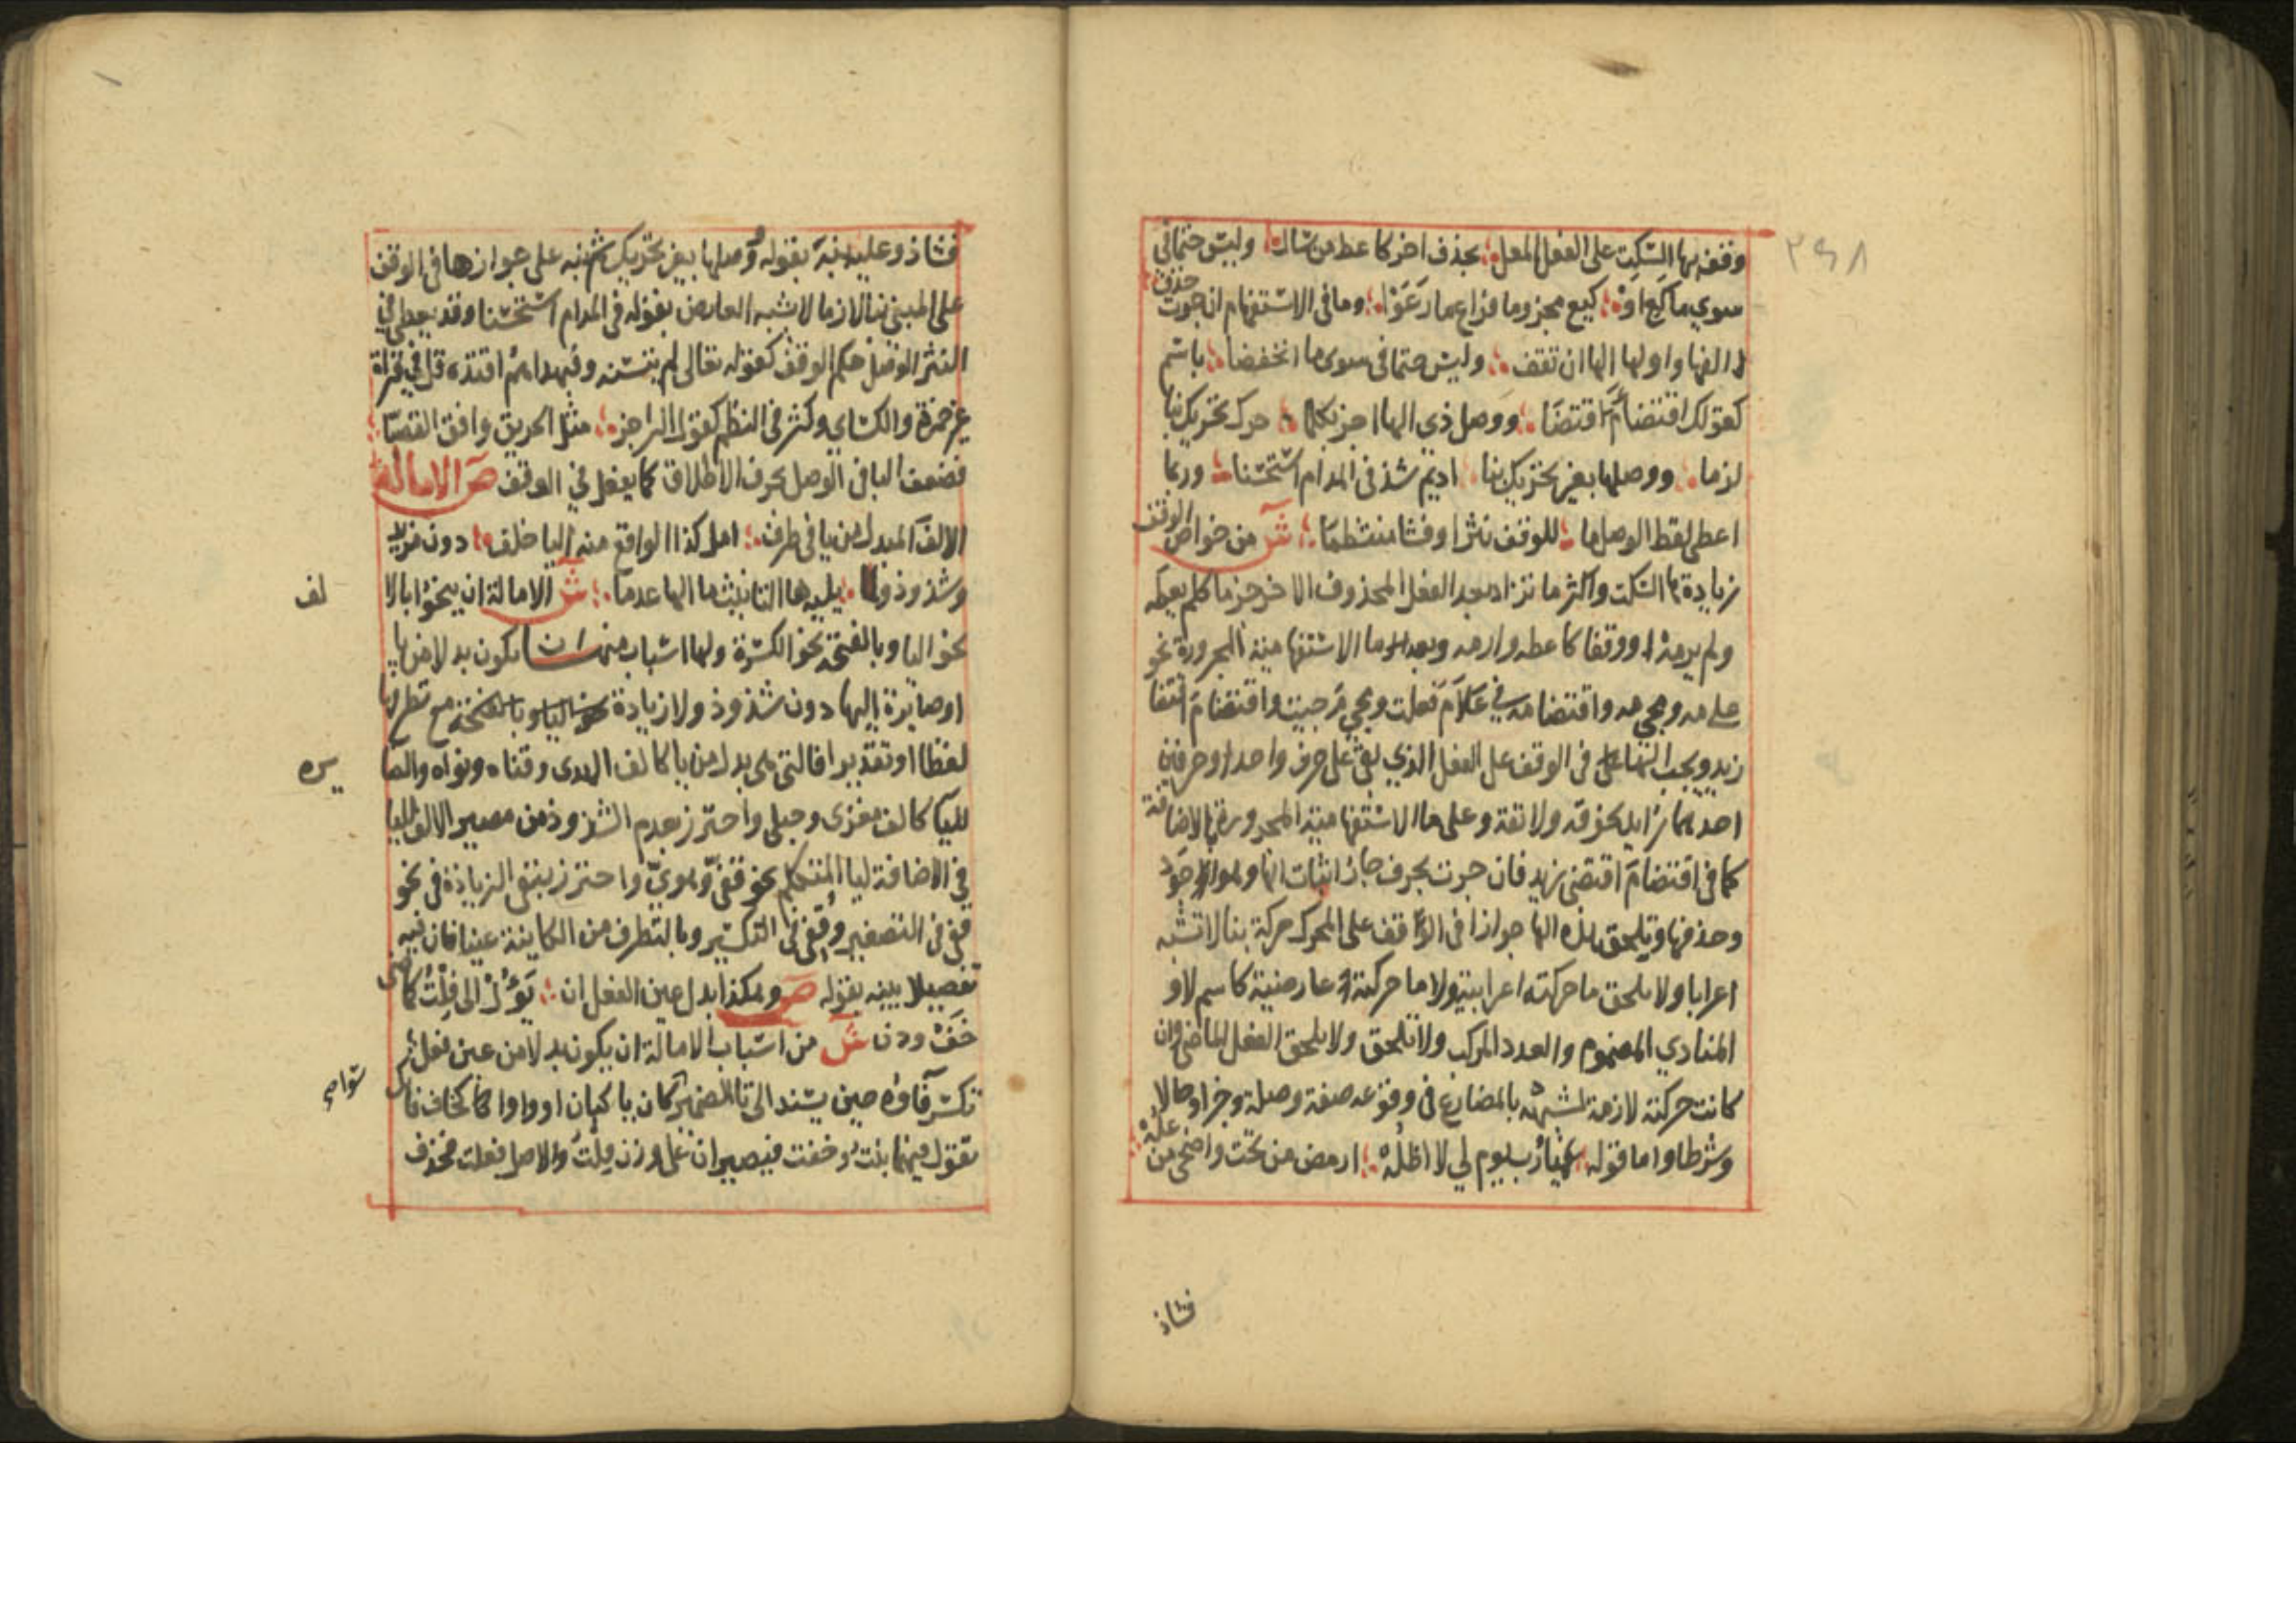 ٢٩٨
وقف بها السكت على الفعل المعل ؛ بحذف اخر كاعط من سأل ؛ وليس حتما في
سوى ما كع او ؛ كيع مجزوما فراع ما رعوا ؛ وما في الاستفهام ان جرت حذف
الفها واولها الها ان تقف ؛ وليس حتما في سوى ما انخفضا ؛ باسم
كقولك اقتضام اقتضا ؛ ووصل ذي الها اجز بكلما ؛ حرك تحريك بنا
لزما ؛ ووصلها بغير تحريك بنا ؛ اديم شذ في المدام استحسنا ؛ وربما
اعطى لفظ الوصل ما ؛ للوقف نثرا وفشا منتظما ؛ ش من خواص الوقف
زيادة ها السكت واكثر ما تزاد بعد الفعل المحذوف الاخر جزما كلم يعطه
ولم يرمه او وقفا كاعطه وارمه وبعد ما الاستفهامية المجرورة نحو
على مه ومجي مه واقتضا مه في علام فعلت ومجي م جيت واقتضام اقتضا
زيد ويجب الها في الوقف على الفعل الذي بقي على حرف واحد او حرفين
احدهما زايد نحو قه ولا تقه وعلى ما الاستفهامية المجرورة بالاضافة
كما في اقتضام اقتضى زيد فان جرت بحرف جاز اثبات الها وهو الاجود
وحذفها وتلحق هذه الها جوازا في الوقف على المحرك حركة بنا لا تشبه
اعرابا ولا يلحق ما حركته اعرابية ولا ما حركته عارضية كاسم لا و
المنادي المضموم والعدد المركب ولا تلحق ولا يلحق الفعل الماضي وان
كانت حركته لازمة لشبهه بالمضارع في وقوعه صفة وصلة وخبرا وحالا
وشرطا واما قوله ؛ يا رب يوم لي لا اظله ؛ ارمض من تحت واضحى من عله
فشاذ
فشاذ وعليه نبه بقوله ووصلها بغير تحريك ثم نبه على جوازها في الوقف
على المبني بنا لازما لا شبه العارض بقوله في المدام استحسنا وقد يعطى في
النثر الوصل حكم الوقف كقوله تعالى لم يتسنه وفبهداهم اقتده قل في قراة
غير حمزة والكساي وكثر في النظم كقول الراجز ؛ مثل الحريق وافق القصبا ؛
فضعف البا في الوصل بحرف الاطلاق كما يفعل في الوقف ص الامالة
الالف المبدل من يا في طرف ؛ امل كذا الواقع منه اليا خلف ؛ دون مزيد
وشذوذ ولما ؛ يليه ها التانيث ما الها عدما ؛ ش الامالة ان ينحوا بالا
لف
نحو اليا وبالفتحة نحو الكسرة ولها اسباب منها ان يكون بدلا من يا
او صايرة اليها دون شذوذ ولا زيادة نحو اليا وبالفتحة مع تطرفها
لفظا او تقديرا فالتي هي بدل من يا كالف الهدى وفتاه ونواه والصا
يره
لليا كالف مغزى وحبلى واحترز بعدم الشذوذ من مصير الالف لليا
في الاضافة ليا المتكلم نحو قفي وهوي واحترز بنفي الزيادة في نحو
قفي في التصغير وقفي في التكسير وبالتطرف من الكاينة عينا فان فيه
تفصيلا يبينه بقوله ص وهكذا بدل عين الفعل ان ؛ يؤل الى فلت كماضي
خف ودن ش من اسباب الامالة ان يكون بدلا من عين فعل
تكسر فاوه حين يسند الى تا الضمير كان يا كبان او واوا كان كخاف فا
تقول فيهما بنت وخفت فيصيران على وزن فلت والاصل فعلت فحذف